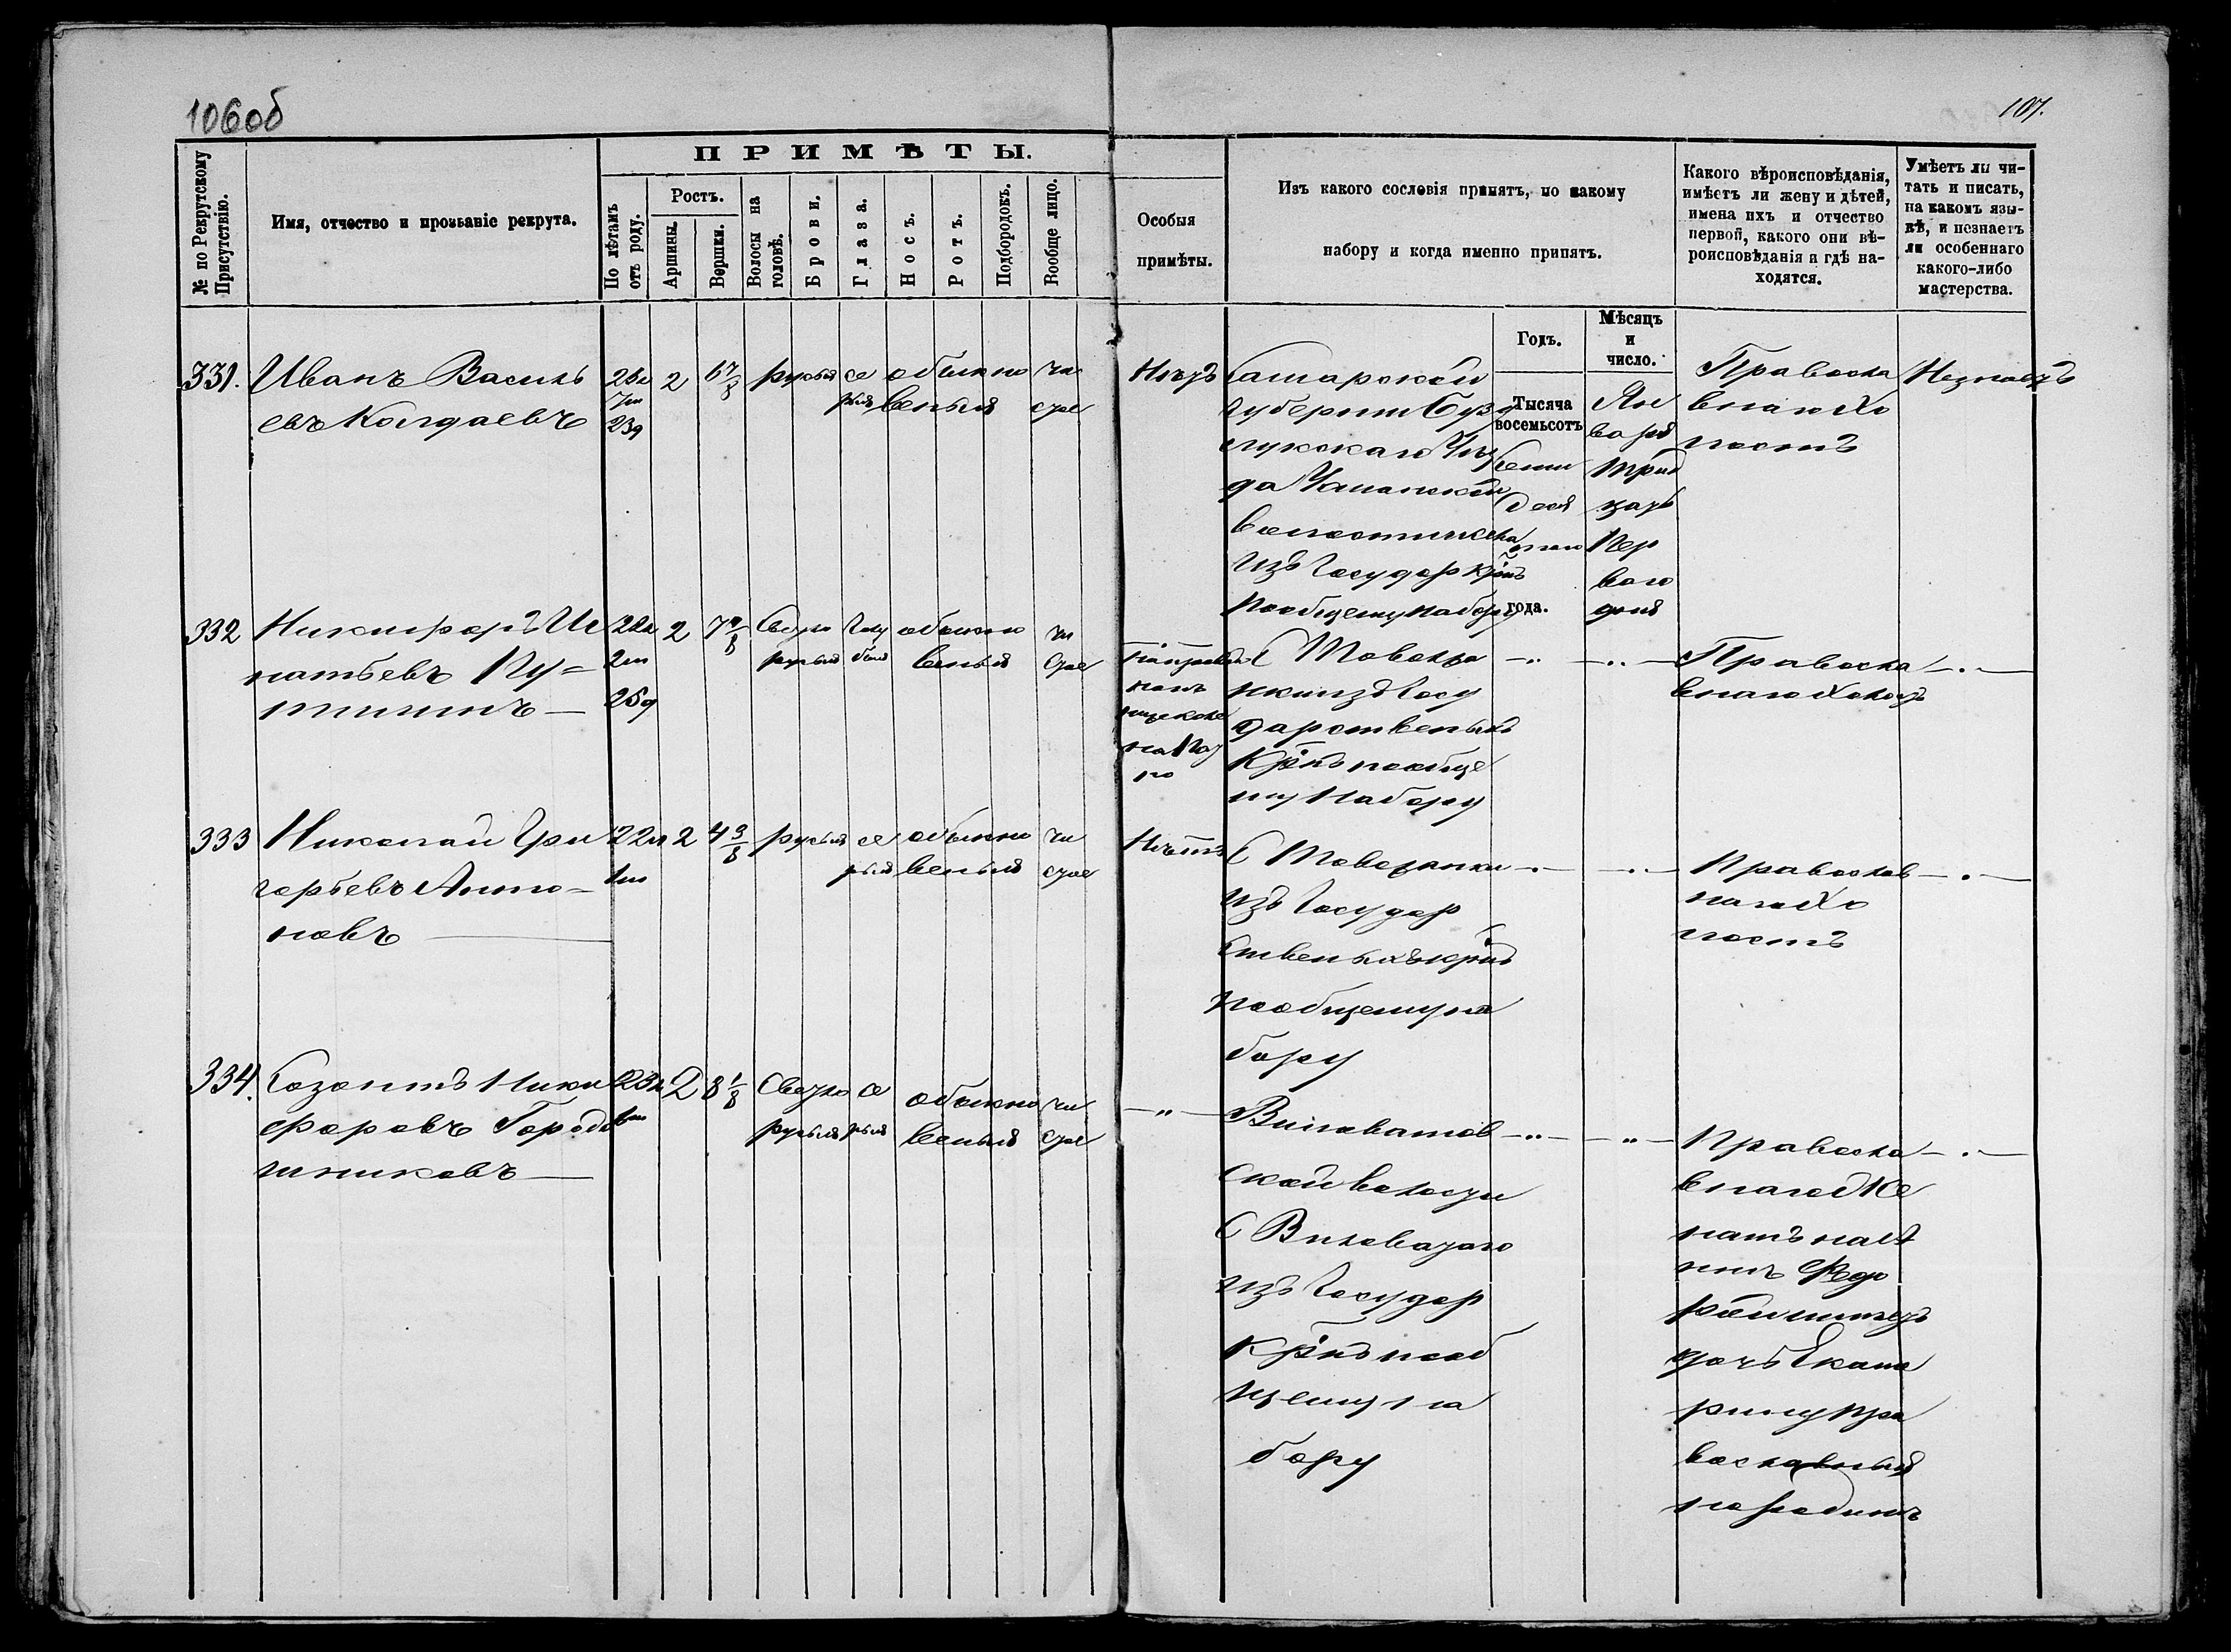 106об
107.
№ по Рекрутскому Присутствію.
Имя, отчество и прозваніе рекрута.
ПРИМѢТЫ.
По лѣтамъ отъ роду.
Ростъ.
Аршины.
Вершки.
Волосы на головѣ.
Брови.
Глаза.
Носъ.
Ротъ.
Подбородокъ.
Вообще лицо.
Особыя
примѣты.
Изъ какого сословія принятъ, по какому
набору и когда именно принятъ.
Годъ.
Мѣсяцъ
и
число.
Какого вѣроисповѣданія,
имѣетъ ли жену и дѣтей,
имена ихъ и отчество
первой, какого они вѣ-
роисповѣданія и гдѣ на-
ходятся.
Умѣетъ ли чи-
тать и писать,
на какомъ язы-
кѣ, и незнаетъ
ли особеннаго
какого-либо
мастерства.
331.
Иванъ Василь
евъ
7м
23д
2
6 7/8
русыя
се
рыя
обыкно
веныя
чи
стое
Нѣтъ
Самарской
губерніи Бузу
лукскаго Уѣз
да
волости
изъ Государ Крѣнъ
пообщему набору
Тысяча
восемьсотъ
семи
деся
таго
года.
Ян
варя
трид
цать
пер
ваго
дня
Правосла
внаго хо
лостъ
Незнаетъ
332
Никифоръ Иг
натьевъ
22л
2м
25д
2
Светло
русыя
голу
быя
обыкно
веныя
чи
стое
напра
щеке
С Товолжа
нки изъ Госу
дарственыхъ
Крѣнъ пообще
му набору
Правосла
внаго Холостъ
333
Николай Гри
горьевъ Анто-
новъ
22л
1м
2
4 3/8
русыя
се
рыя
обыкно
веныя
чи
стое
Нѣтъ
С Товолжанки
изъ Государ
ственыхъ крѣнъ
пообщемуна
бору
Православ
наго Хо
лостъ
334.
Созонтъ Ники
форовъ Городо
шниковъ
23л
2
8 1/8
Светло
русыя
се
рыя
обыкно
веныя
чи
стое
Виловатов
ской волости
С Виловатаго
изъ Государ
Крѣнъ пооб
щему на
бору
Правосла
внаго Же
натъ на
Федо
имѣетъ
дочь Екате
рину пра
вославныя
народинѣ